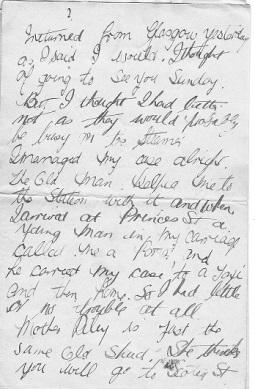 I returned from Glasgow yesterday
as I said I would. I thought
of going to see you Sunday.
But, I thought I had better
not as they would probably
be busy in the
I managed my case alright.
The Old Man walked me to
the Station with it and when
I arrived at Princes St a
young man in my carriage
called me a and
he carried my case to a Taxi
and then home. So I had little
or no trouble at all.
Mother Riley is just the
same old She thinks
you will go to St